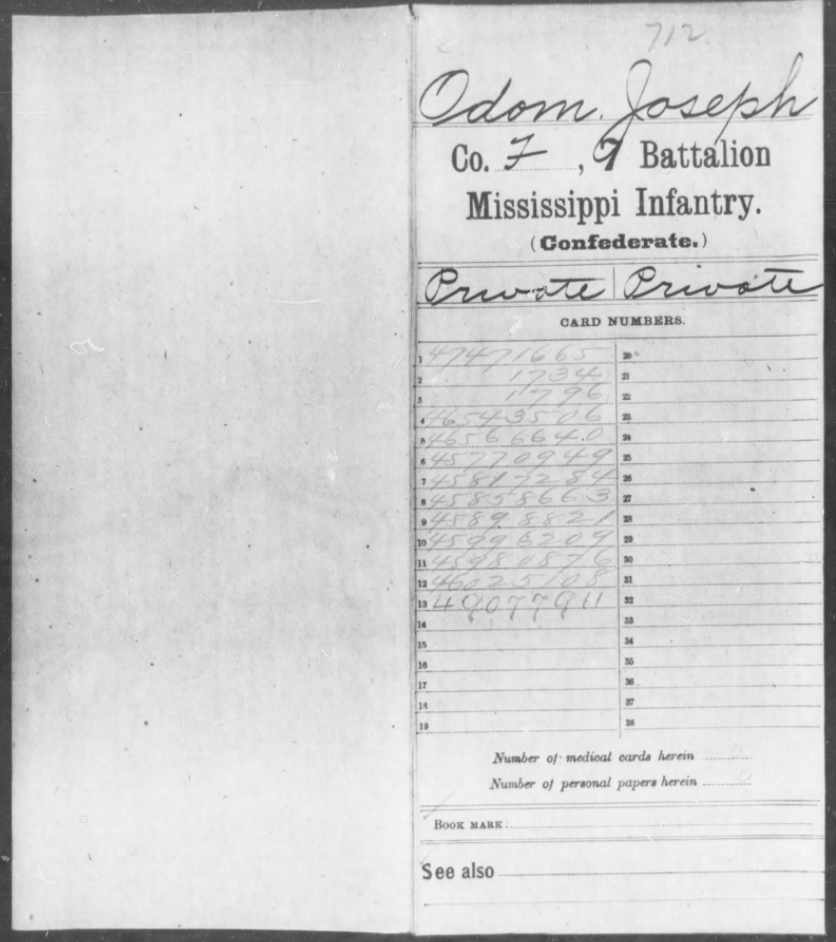 712
Odom, Joseph
Co. F, 7 Battalion
Mississippi Infantry.
(Confederate.)
Private | Private
CARD NUMBERS.
1 47471665 20
2 1734 21
3 1796 22
4 46543506 23
5 46566640 24
6 45770949 25
7 45817284 26
8 45858663 27
9 45898821 28
10 45996209 29
11 45980876 30
12 46025108 31
13 49077911 32
14 33
15 34
16 35
17 36
18 37
19 38
Number of medical cards herein
Number of personal papers herein 0
BOOK MARK:
See also